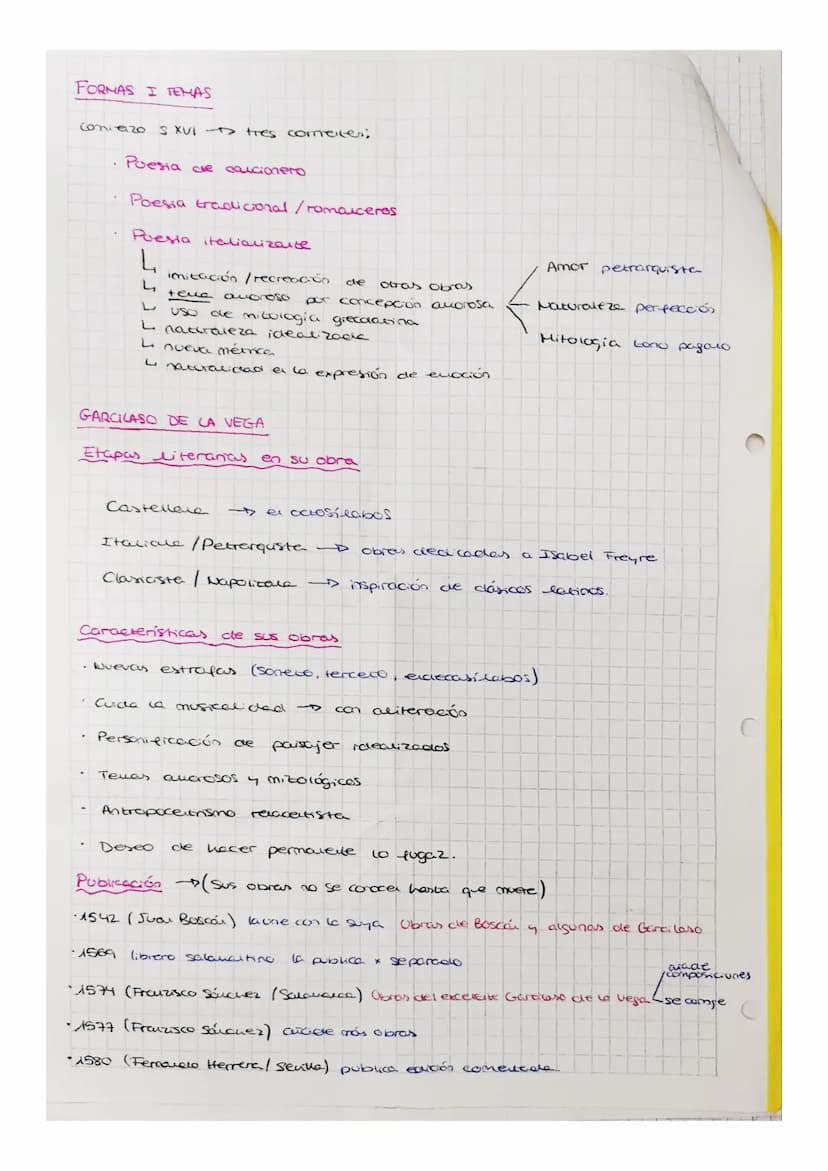 FORMAS I TEMAS
comienzo S XVI → tres corrientes:
· Poesía de cancionero
· Poesía tradicional / romanceros
· Poesía italianizante
imitación / recreación de otras obras
tema amoroso por concepción amorosa
uso de mitología grecolatina
naturaleza idealizada
nueva métrica
naturalidad en la expresión de emoción
Amor petrarquista
Naturaleza perfección
Mitología tono pagano
GARCILASO DE LA VEGA
Etapas literarias en su obra
Castellana → en octosílabos
Italiana / Petrarquista → obras dedicadas a Isabel Freyre
Clasicista / Napolitana → inspiración de clásicos latinos.
Características de sus obras
· Nuevas estrofas (soneto, terceto, endecasílabos)
· Cuida la musicalidad → con aliteración
· Personificación de paisajes idealizados
· Temas amorosos y mitológicos
· Antropocentrismo renacentista
· Deseo de hacer permanente lo fugaz.
Publicación → (Sus obras no se conocen hasta que muere)
· 1542 (Juan Boscán) la une con la suya Obras de Boscán y algunas de Garcilaso
· 1569 librero salmantino la publica x separado
añade
composiciones
· 1574 (Francisco Sánchez / Salamanca) Obras del excelente Garcilaso de la Vega se corrige
· 1577 (Francisco Sánchez) añade más obras
· 1580 (Fernando Herrera / Sevilla) publica edición comentada